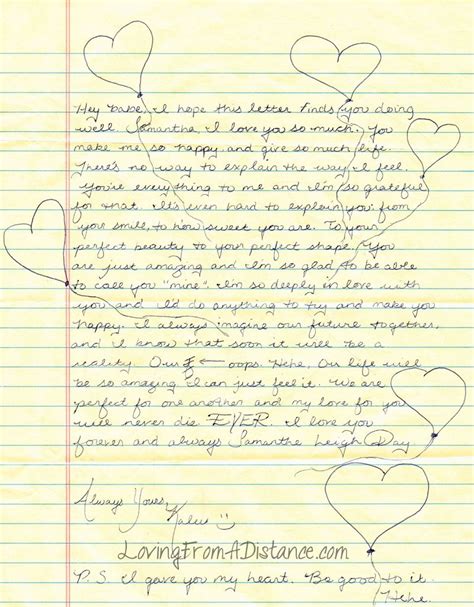 Hey babe, I hope this letter finds you doing
well. Samantha, I love you so much. You
make me so happy and give so much life.
There's no way to explain the way I feel.
You're everything to me and I'm so grateful
for that. It's even hard to explain you: from
your smile, to how sweet you are. To your
perfect beauty to your perfect shape. You
are just amazing and I'm so glad to be able
to call you "mine". I'm so deeply in love with
you and I'd do anything to try and make you
happy. I always imagine our future together,
and I know that soon it will be a
reality. Our ← oops. Hehe, Our life will
be so amazing I can just feel it. We are
perfect for one another and my love for you
will never die EVER. I love you
forever and always Samantha Leigh Day
Always Yours,
LovingFromADistance.com
P.S. I gave you my heart. Be good to it.
Hehe.